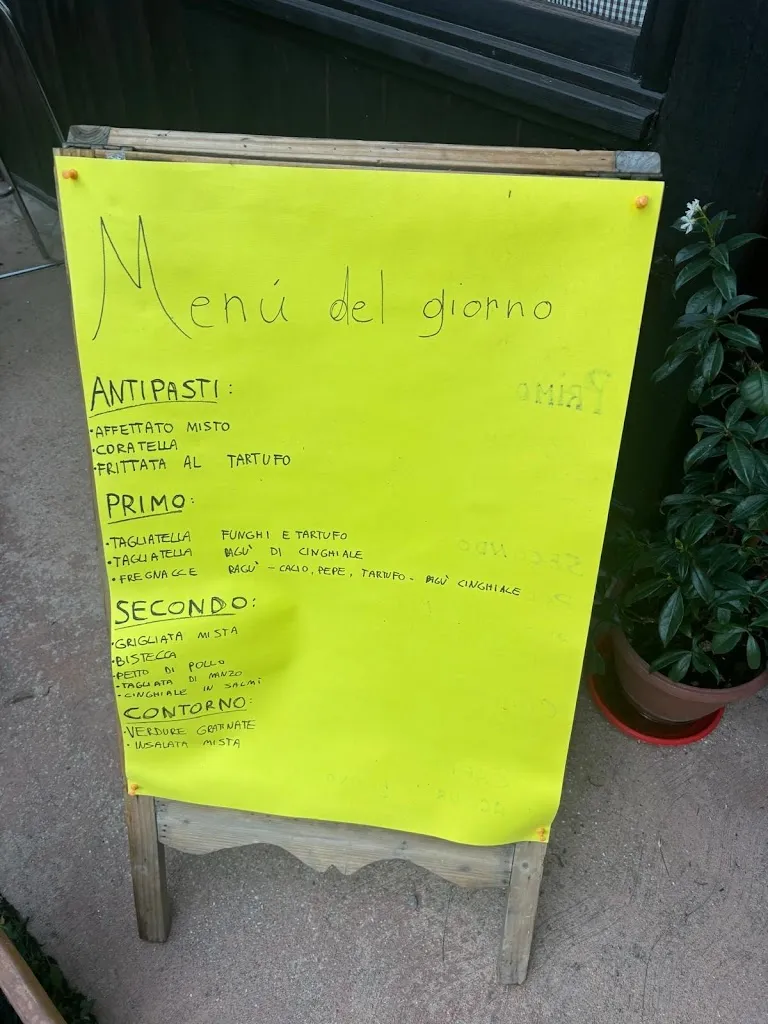 Menú del giorno
ANTIPASTI:
·AFFETTATO MISTO
·CORATELLA
·FRITTATA AL TARTUFO
PRIMO:
·TAGLIATELLA FUNGHI E TARTUFO
·TAGLIATELLA RAGU' DI CINGHIALE
·FREGNACCE RAGU' - CACIO, PEPE, TARTUFO - RAGU' CINGHIALE
SECONDO:
·GRIGLIATA MISTA
·BISTECCA
·PETTO DI POLLO
·TAGLIATA DI MANZO
·CINGHIALE IN SALMÍ
CONTORNO:
·VERDURE GRATINATE
·INSALATA MISTA
PRIMO
SECONDO